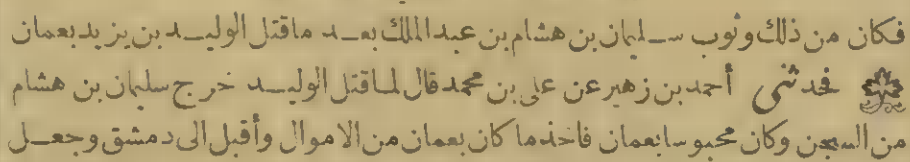 فكان من ذلك وثوب سليمان بن هشام بن عبد الملك بعد ما قتل الوليد بن يزيد بعمان
فحدثنى أحمد بن زهير عن على بن محمد قال لما قتل الوليد خرج سليمان بن هشام
من السجن وكان محبوسا بعمان فاخذ ما كان بعمان من الاموال وأقبل الى دمشق وجعل